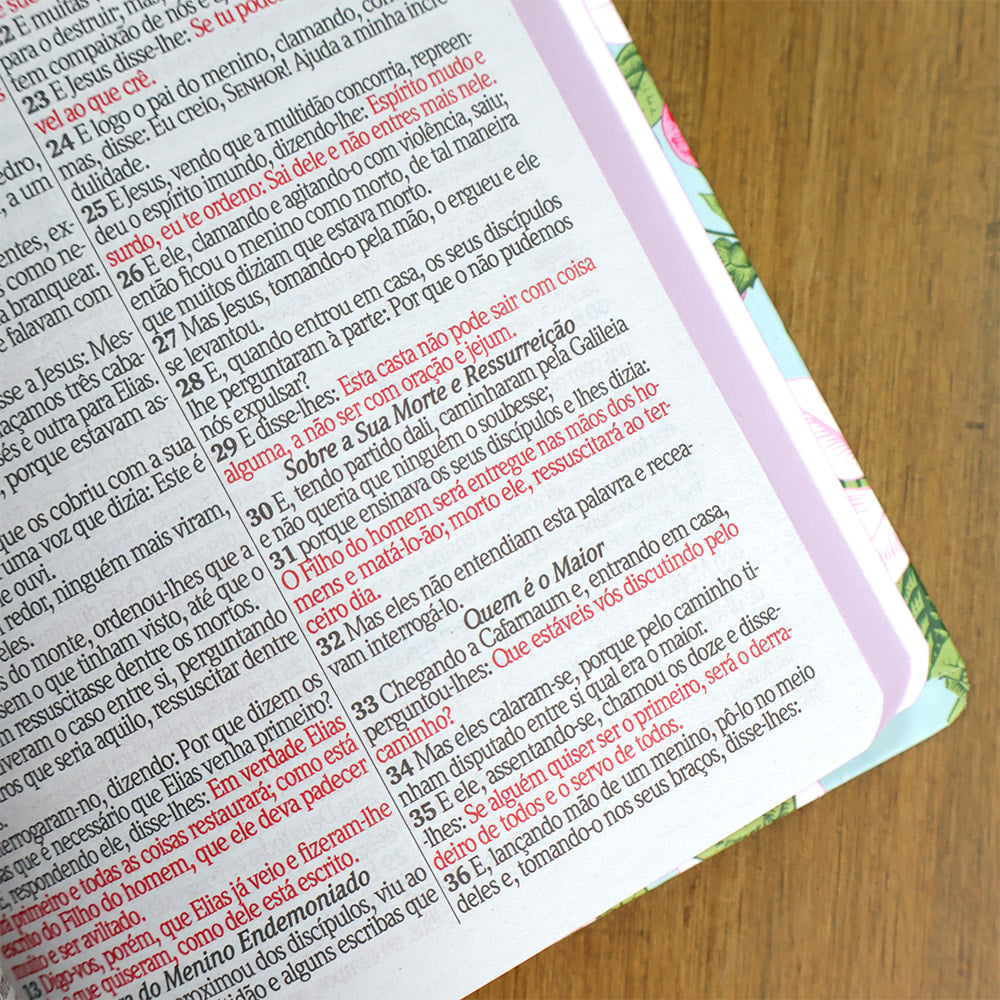 edro,
, a um
entes, ex-
como ne-
branquear.
e falavam com
sse a Jesus: Mes-
açamos três caba-
sés e outra para Elias.
, porque estavam as-
que os cobriu com a sua
uma voz que dizia: Este é
e ouvi.
redor, ninguém mais viram,
eles.
do monte, ordenou-lhes que a
sem o que tinham visto, até que o
ressuscitasse dentre os mortos.
iveram o caso entre si, perguntando
ros que seria aquilo, ressuscitar dentre
errogaram-no, dizendo: Por que dizem os
as que é necessário que Elias venha primeiro?
, respondendo ele, disse-lhes: Em verdade Elias
á primeiro e todas as coisas restaurará; como está
escrito do Filho do homem, que ele deva padecer
muito e ser aviltado.
13 Digo-vos, porém, que Elias já veio e fizeram-lhe
que quiseram, como dele está escrito.
do Menino Endemoniado
aproximou dos discípulos, viu ao
tidão e alguns escribas que
22 E muitas
para o destruir; mas,
tem compaixão de nós e
23 E Jesus disse-lhe: Se tu pode
vel ao que crê.
24 E logo o pai do menino, clamando, com
mas, disse: Eu creio, SENHOR! Ajuda a minha incre
dulidade.
25 E Jesus, vendo que a multidão concorria, repreen-
deu o espírito imundo, dizendo-lhe: Espírito mudo e
surdo, eu te ordeno: Sai dele e não entres mais nele.
26 E ele, clamando e agitando-o com violência, saiu;
então ficou o menino como morto, de tal maneira
que muitos diziam que estava morto.
27 Mas Jesus, tomando-o pela mão, o ergueu e ele
se levantou.
28 E, quando entrou em casa, os seus discípulos
lhe perguntaram à parte: Por que o não pudemos
nós expulsar?
29 E disse-lhes: Esta casta não pode sair com coisa
alguma, a não ser com oração e jejum.
Sobre a Sua Morte e Ressurreição
30 E, tendo partido dali, caminharam pela Galileia
e não queria que ninguém o soubesse;
31 porque ensinava os seus discípulos e lhes dizia:
O Filho do homem será entregue nas mãos dos ho-
mens e matá-lo-ão; morto ele, ressuscitará ao ter-
ceiro dia.
32 Mas eles não entendiam esta palavra e recea-
vam interrogá-lo.
Quem é o Maior
33 Chegando a Cafarnaum e, entrando em casa,
perguntou-lhes: Que estáveis vós discutindo pelo
caminho?
34 Mas eles calaram-se, porque pelo caminho ti-
nham disputado entre si qual era o maior.
35 E ele, assentando-se, chamou os doze e disse-
-lhes: Se alguém quiser ser o primeiro, será o derra-
deiro de todos e o servo de todos.
36 E, lançando mão de um menino, pô-lo no meio
deles e, tomando-o nos seus braços, disse-lhes: